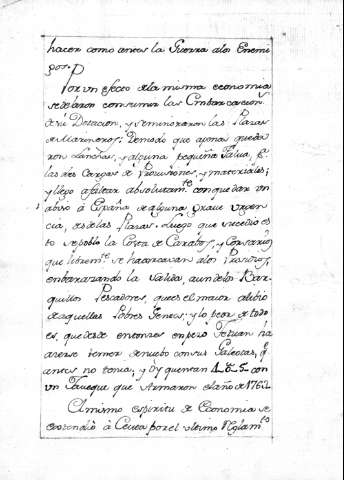 hacer como antes la Guerra alos Enemi
gos.
Por un efecto dela misma economia
se dexaron consumir las Embarcacion.
de su Dotacion, y se minoraron las Plazas
de Marineros; De modo que apenas queda
ron Lanchas, y alguna pequeña Falua,
las de Cargas de Provisiones, y materiales;
y llego afaltar absolutam.te con que dar un
abiso à España de alguna grave urgen
cia, de las Plazas. Luego que sucedio es
to se poblo la Costa de Carabos, y Corsarios
que librem.te se hacercavan alos Presidios,
embarazando la Salida, aun delos Bar
quillos Pescadores, que es el maior alibio
de aquellas Pobres Gentes; y lo peor de todo
es, que desde entonces empezò Tetuan ha
acerse temer de nuebo con sus Galeotas, q.e
antes no tenia; y oy quentan 4 ò 5 con
un Javeque que Armaron el año de 1762.
El mismo espiritu de Economia se
extendiò à Ceuta por el ultimo Reglam.to